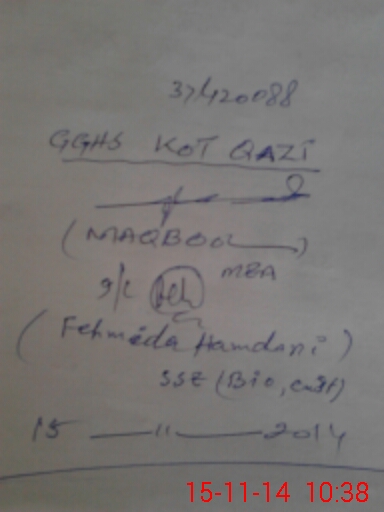 37420088
GGHS KOT QAZI
(MAQBOOL)
MEA
(Fehmeda Hamdani)
SSE (Bio,
15 — 11 — 2014
15-11-14 10:38